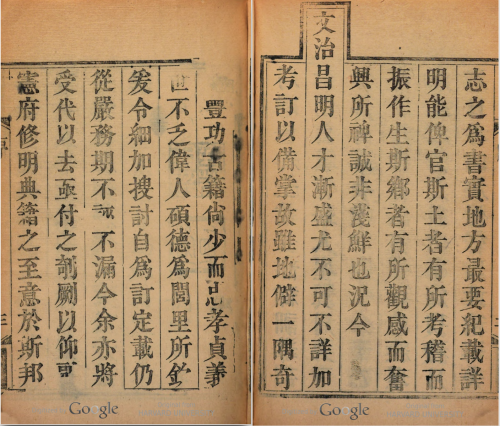 志之爲書實地方最要紀載詳
明能俾官斯土者有所考稽而
振作生斯鄉者有所觀感而奮
興所裨誠非淺鮮也況今
文治昌明人才漸盛尤不可不詳加
考訂以備掌故雖地僻一隅奇
豐功古籍尙少而忠孝貞義
世不乏偉人碩德爲閭里所欽
爰令細加搜討自爲訂定載仍
從嚴務期不 不漏今余亦將
受代以去亟付之剞劂以仰
憲府修明典籍之至意於斯邦
Google
Google